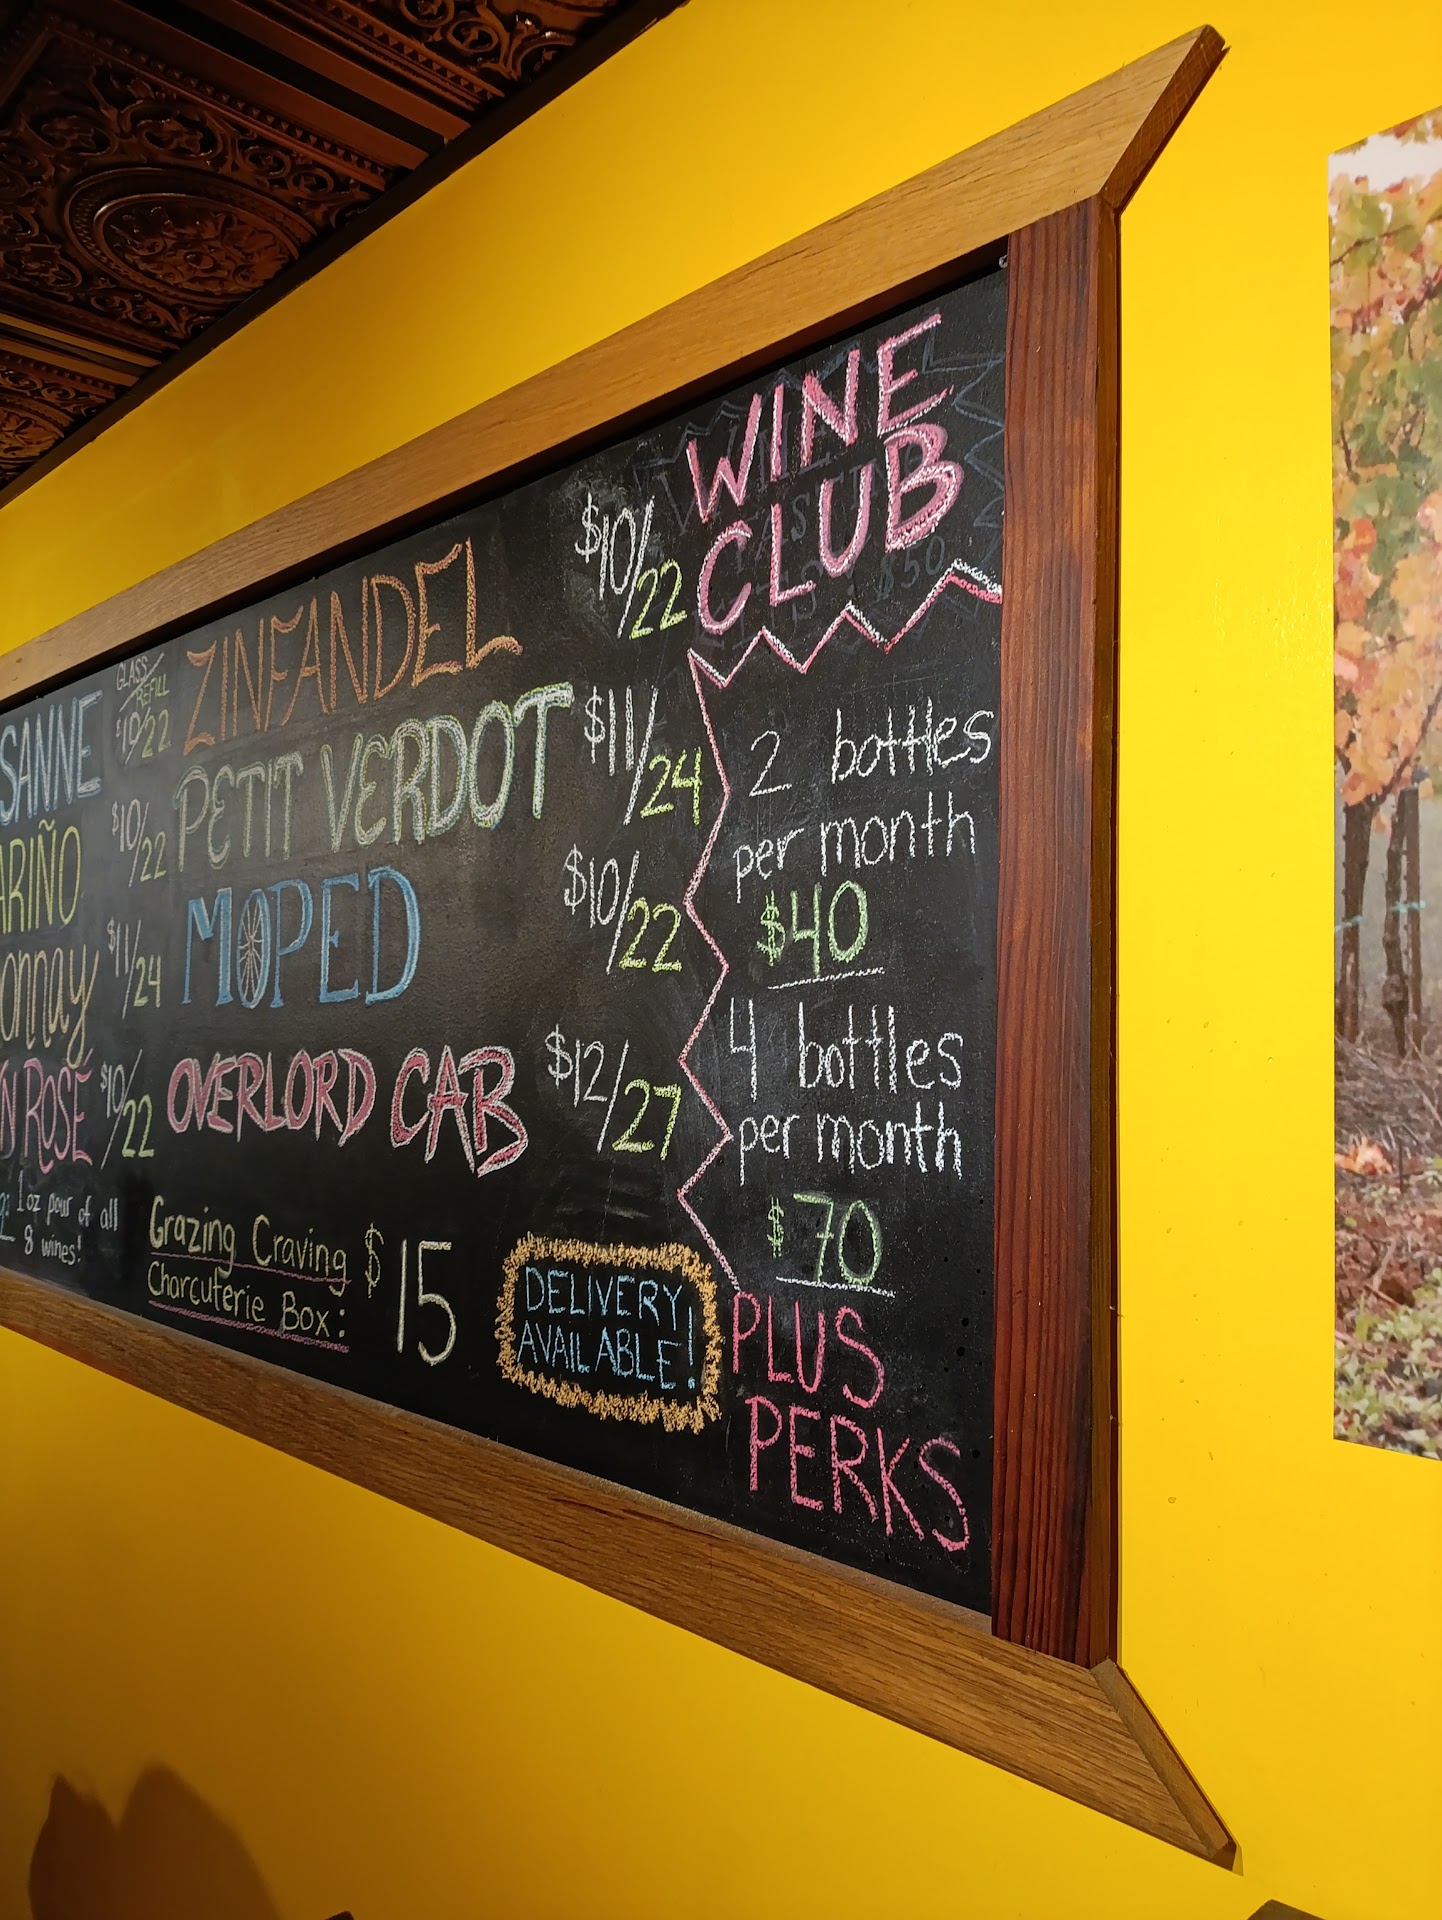 SANNE
GLASS/REFILL
$10/22
ARIÑO $10/22
onnay $11/24
N ROSÉ $10/22
1oz pour of all
8 wines!
ZINFANDEL $10/22
PETIT VERDOT $11/24
MOPED $10/22
OVERLORD CAB $12/27
Grazing Craving
Charcuterie Box: $15
DELIVERY
AVAILABLE!
WINE
CLUB
2 bottles
per month
$40
4 bottles
per month
$70
PLUS
PERKS